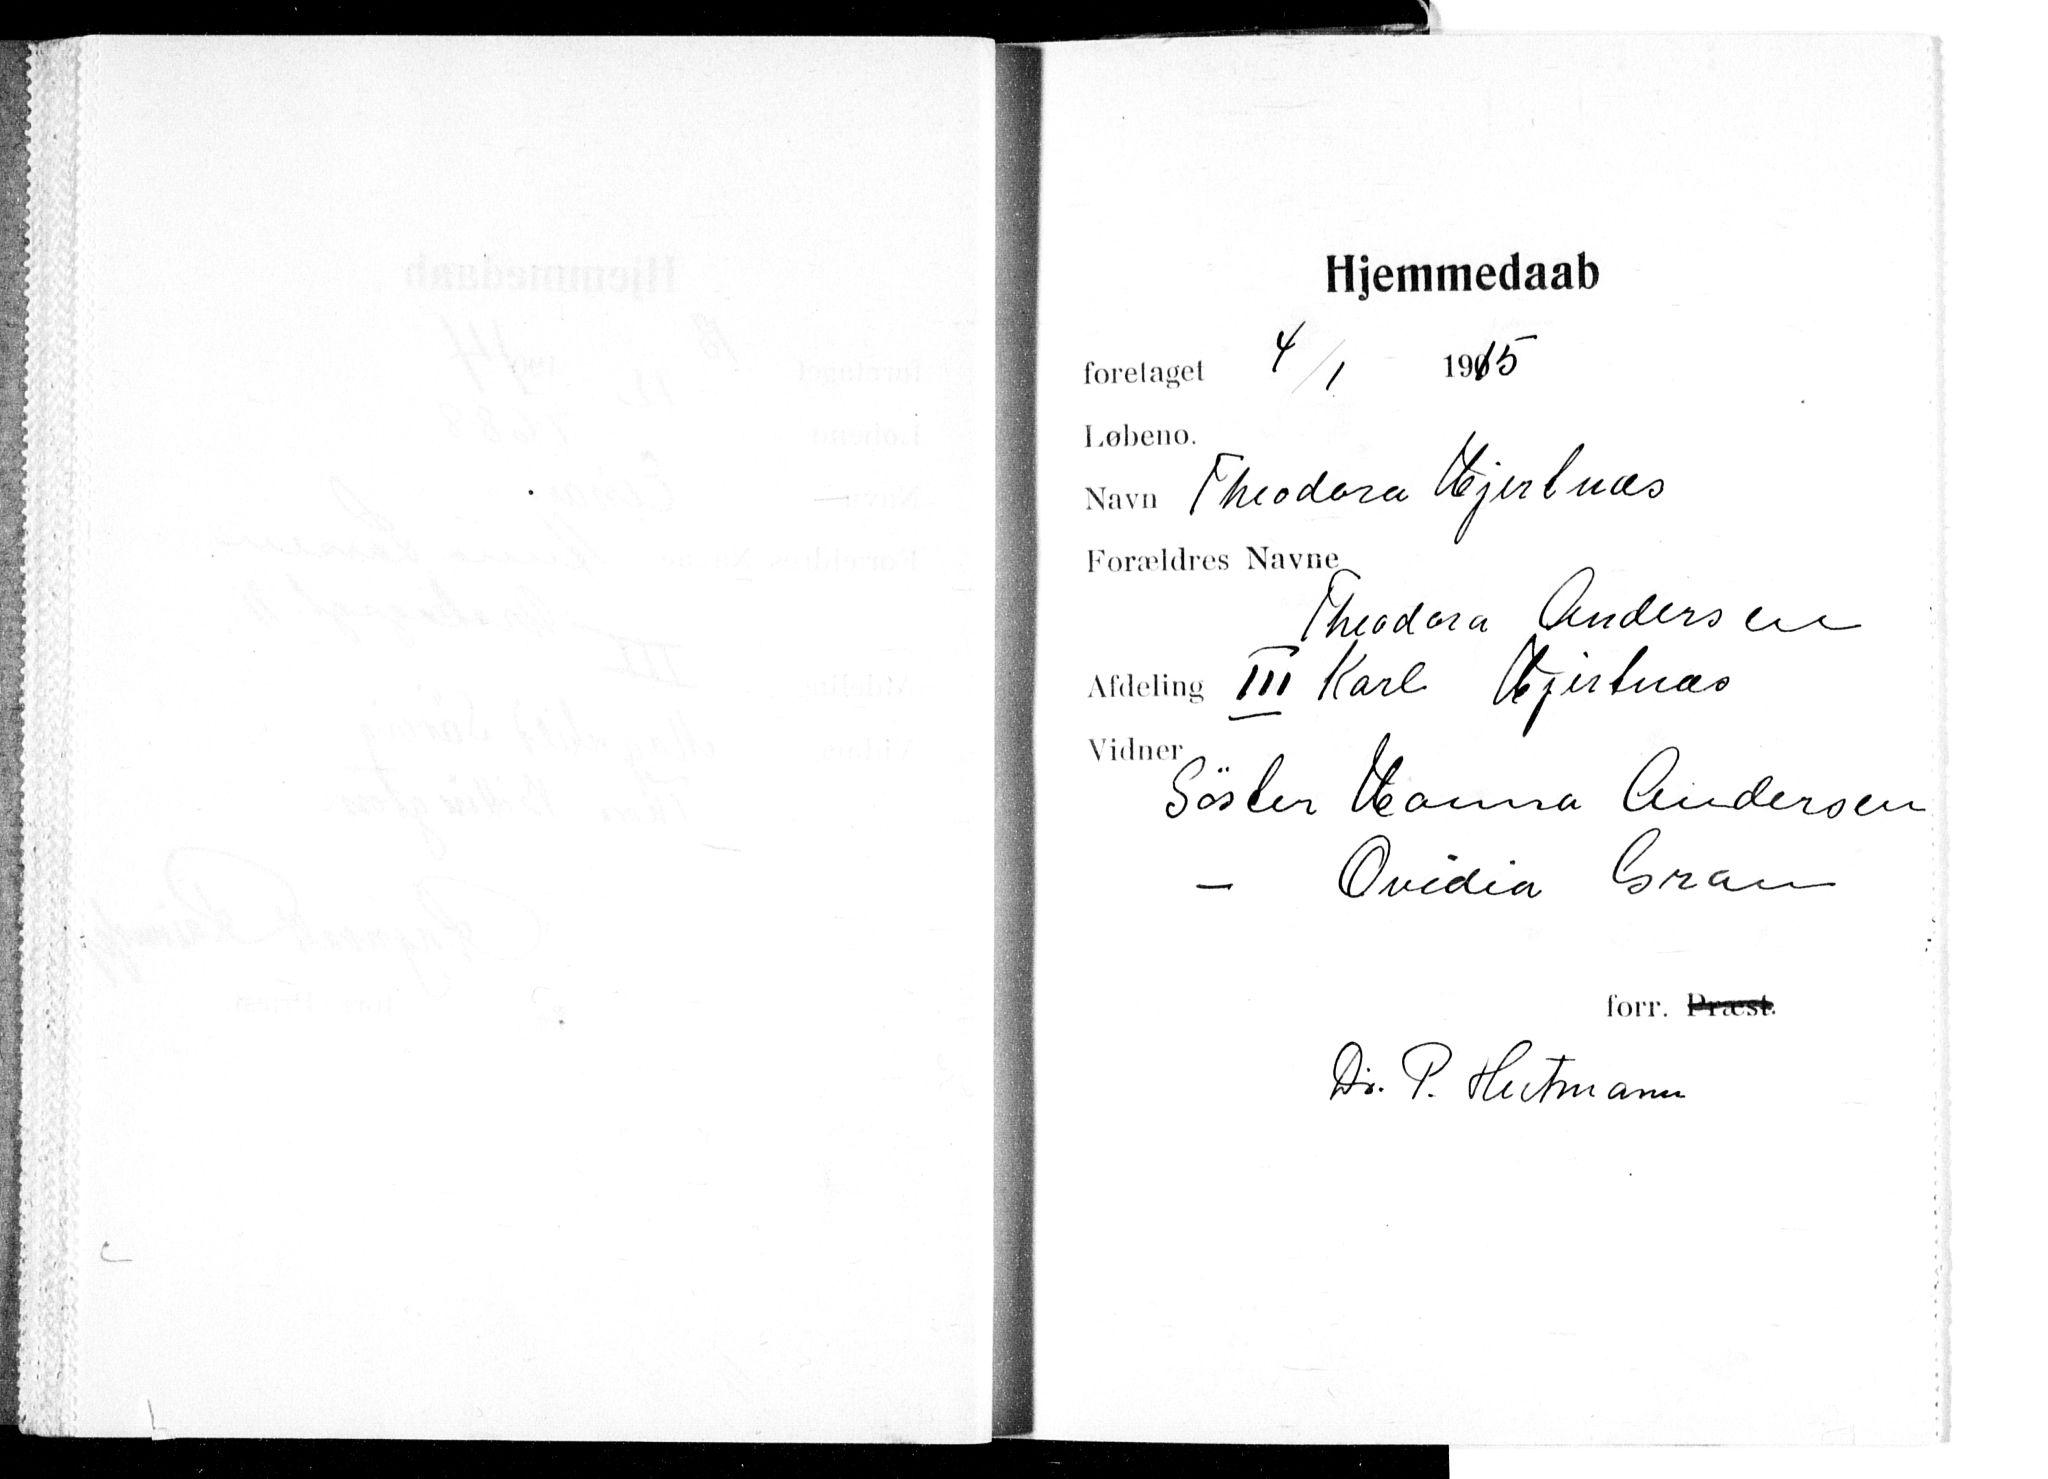 Hjemmedaab
foretaget 4/1 1915
Løbeno.
Navn Theodora Hjertnæs
Forældres Navne
Theodora Andersen
Afdeling III Karl Hjertnæs
Vidner
Söster Hanna Andersen
— Ovidia Gran
forr. Præst.
Dr. P. Heitmann